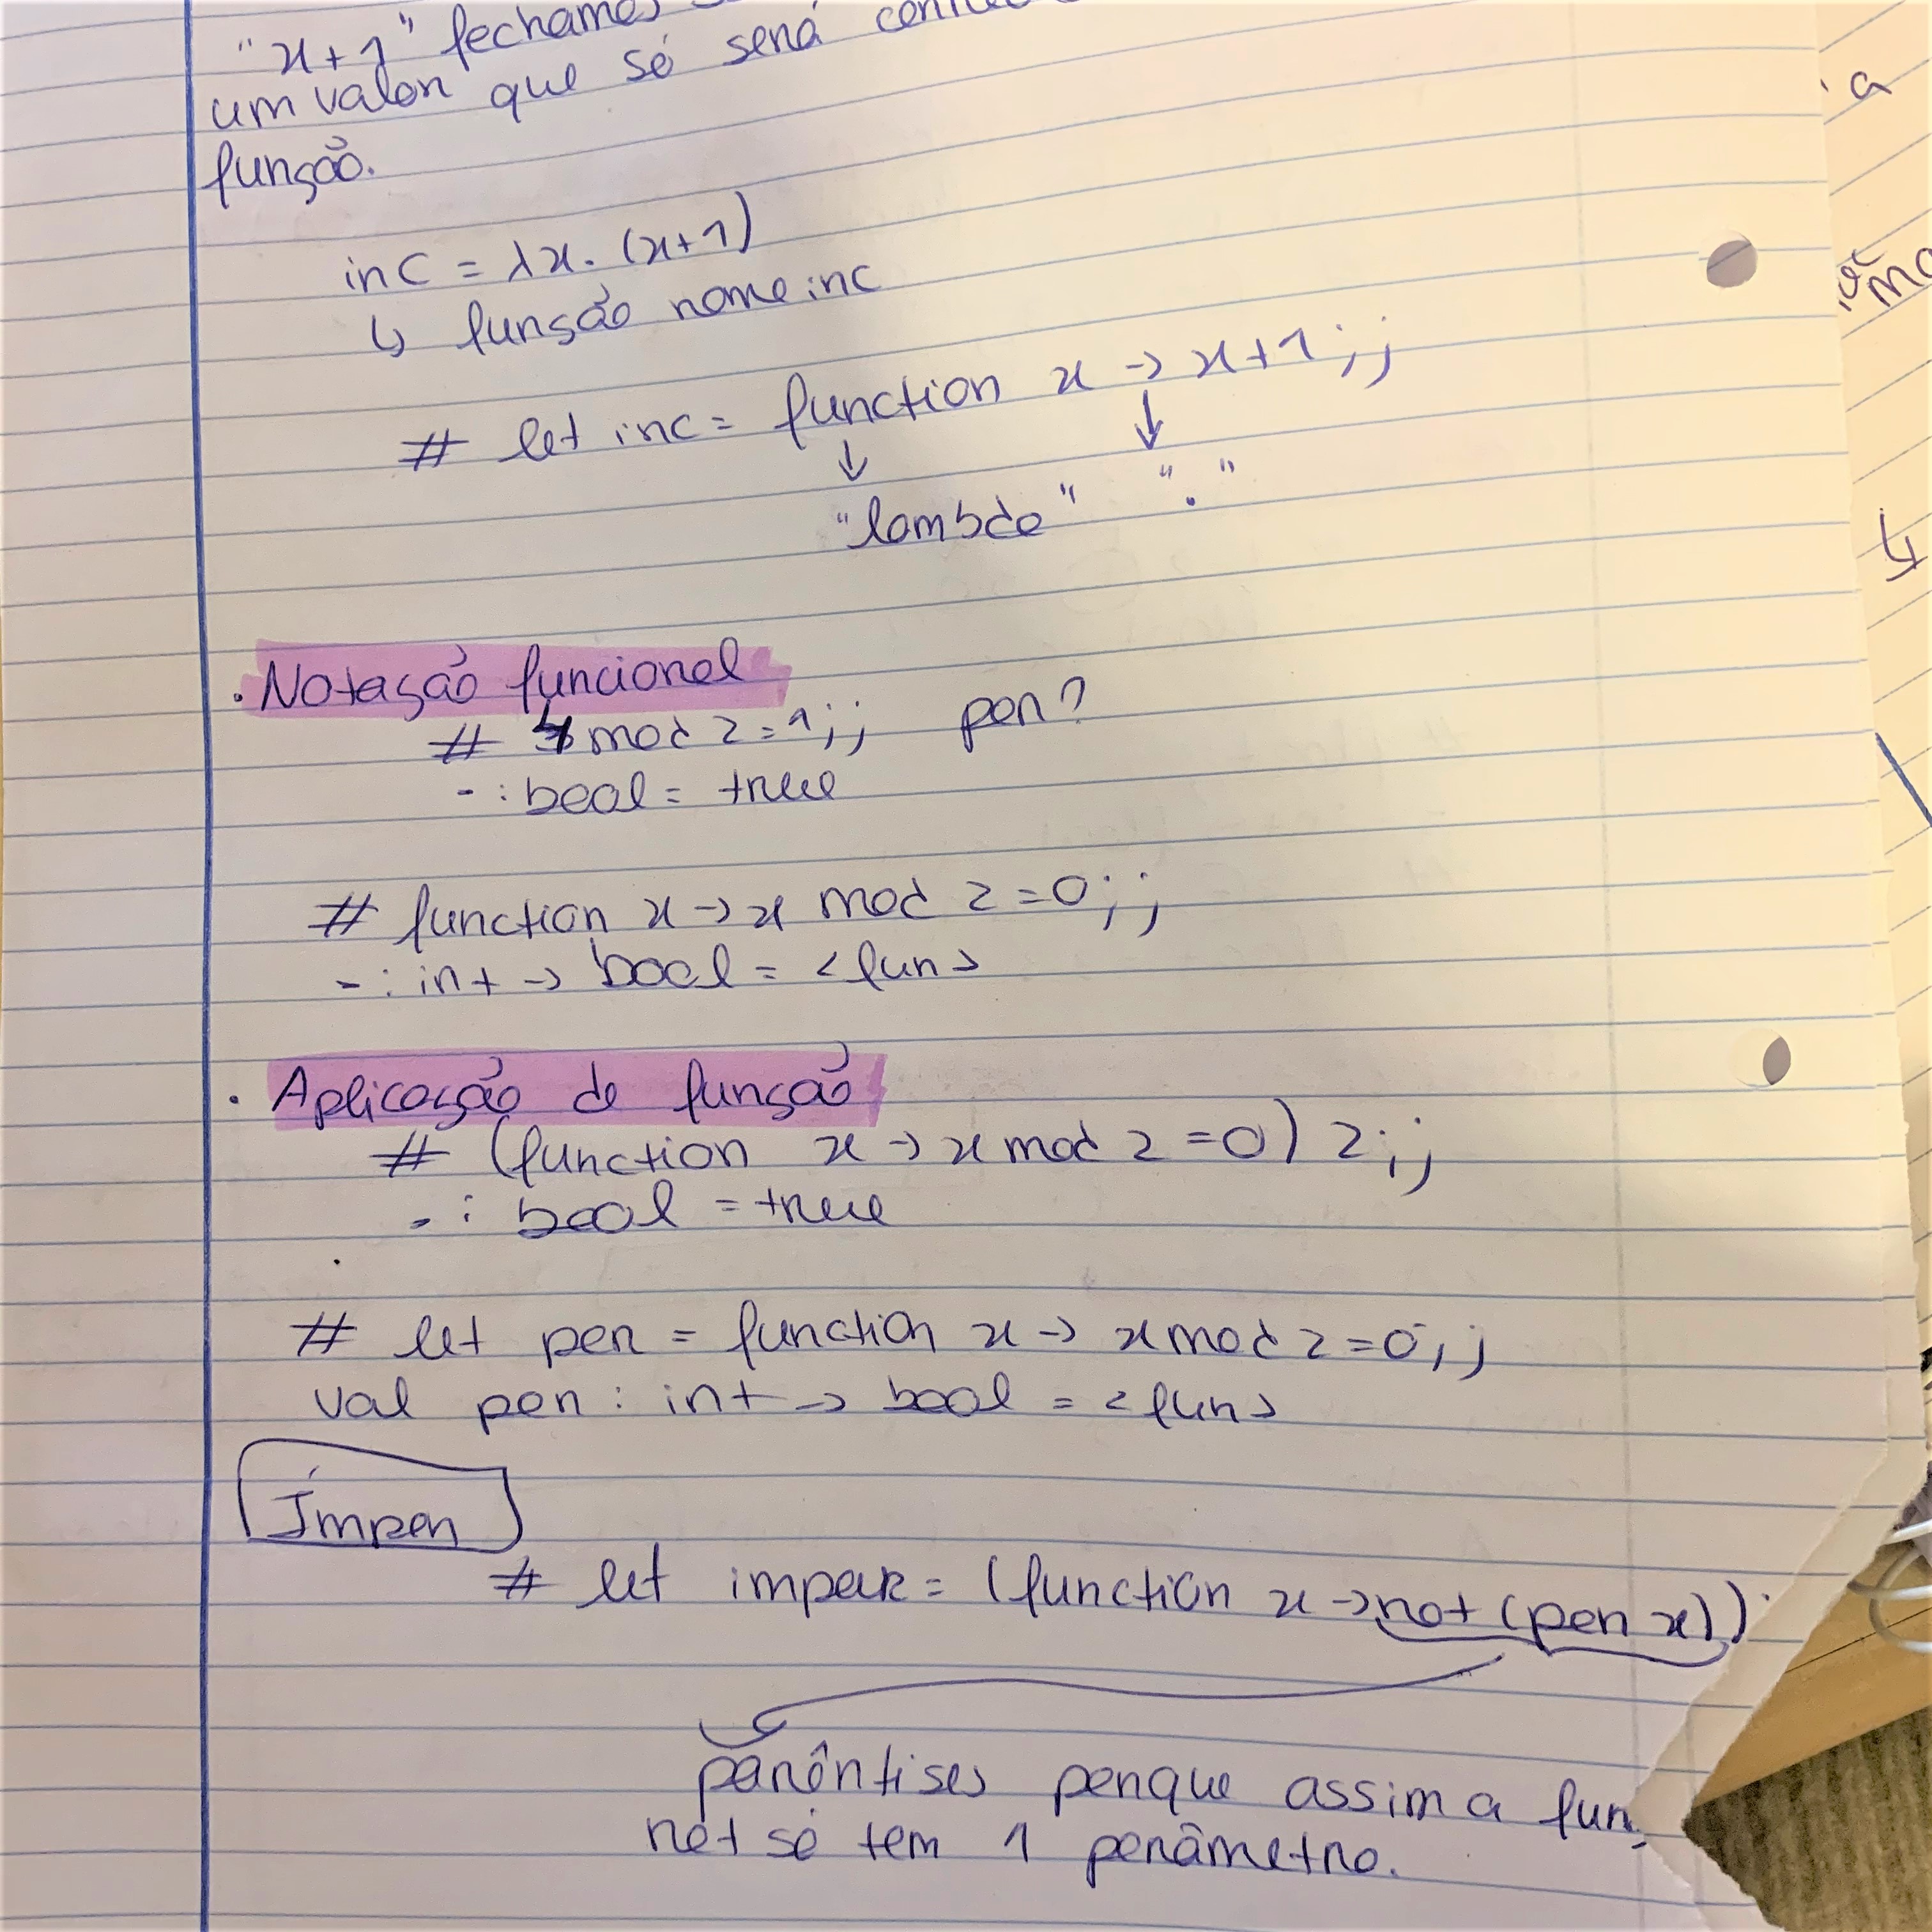 "x+1" fechamos
um valor que só será
função.
inc = λx. (x+1)
↳ função nome inc
# let inc = function x -> x+1;;
↓ ↓
"lambda" "."
. Notação funcional
# mod 2 = 1;; par?
- : bool = true
# function x -> x mod 2 = 0;;
- : int -> bool = <fun>
. Aplicação de função
# (function x -> x mod 2 = 0) 2;;
- : bool = true
# let par = function x -> x mod 2 = 0;;
val par : int -> bool = <fun>
Ímpar
# let impar = (function x -> not (par x))
parêntises porque assim a fun
not só tem 1 parâmetro.
a